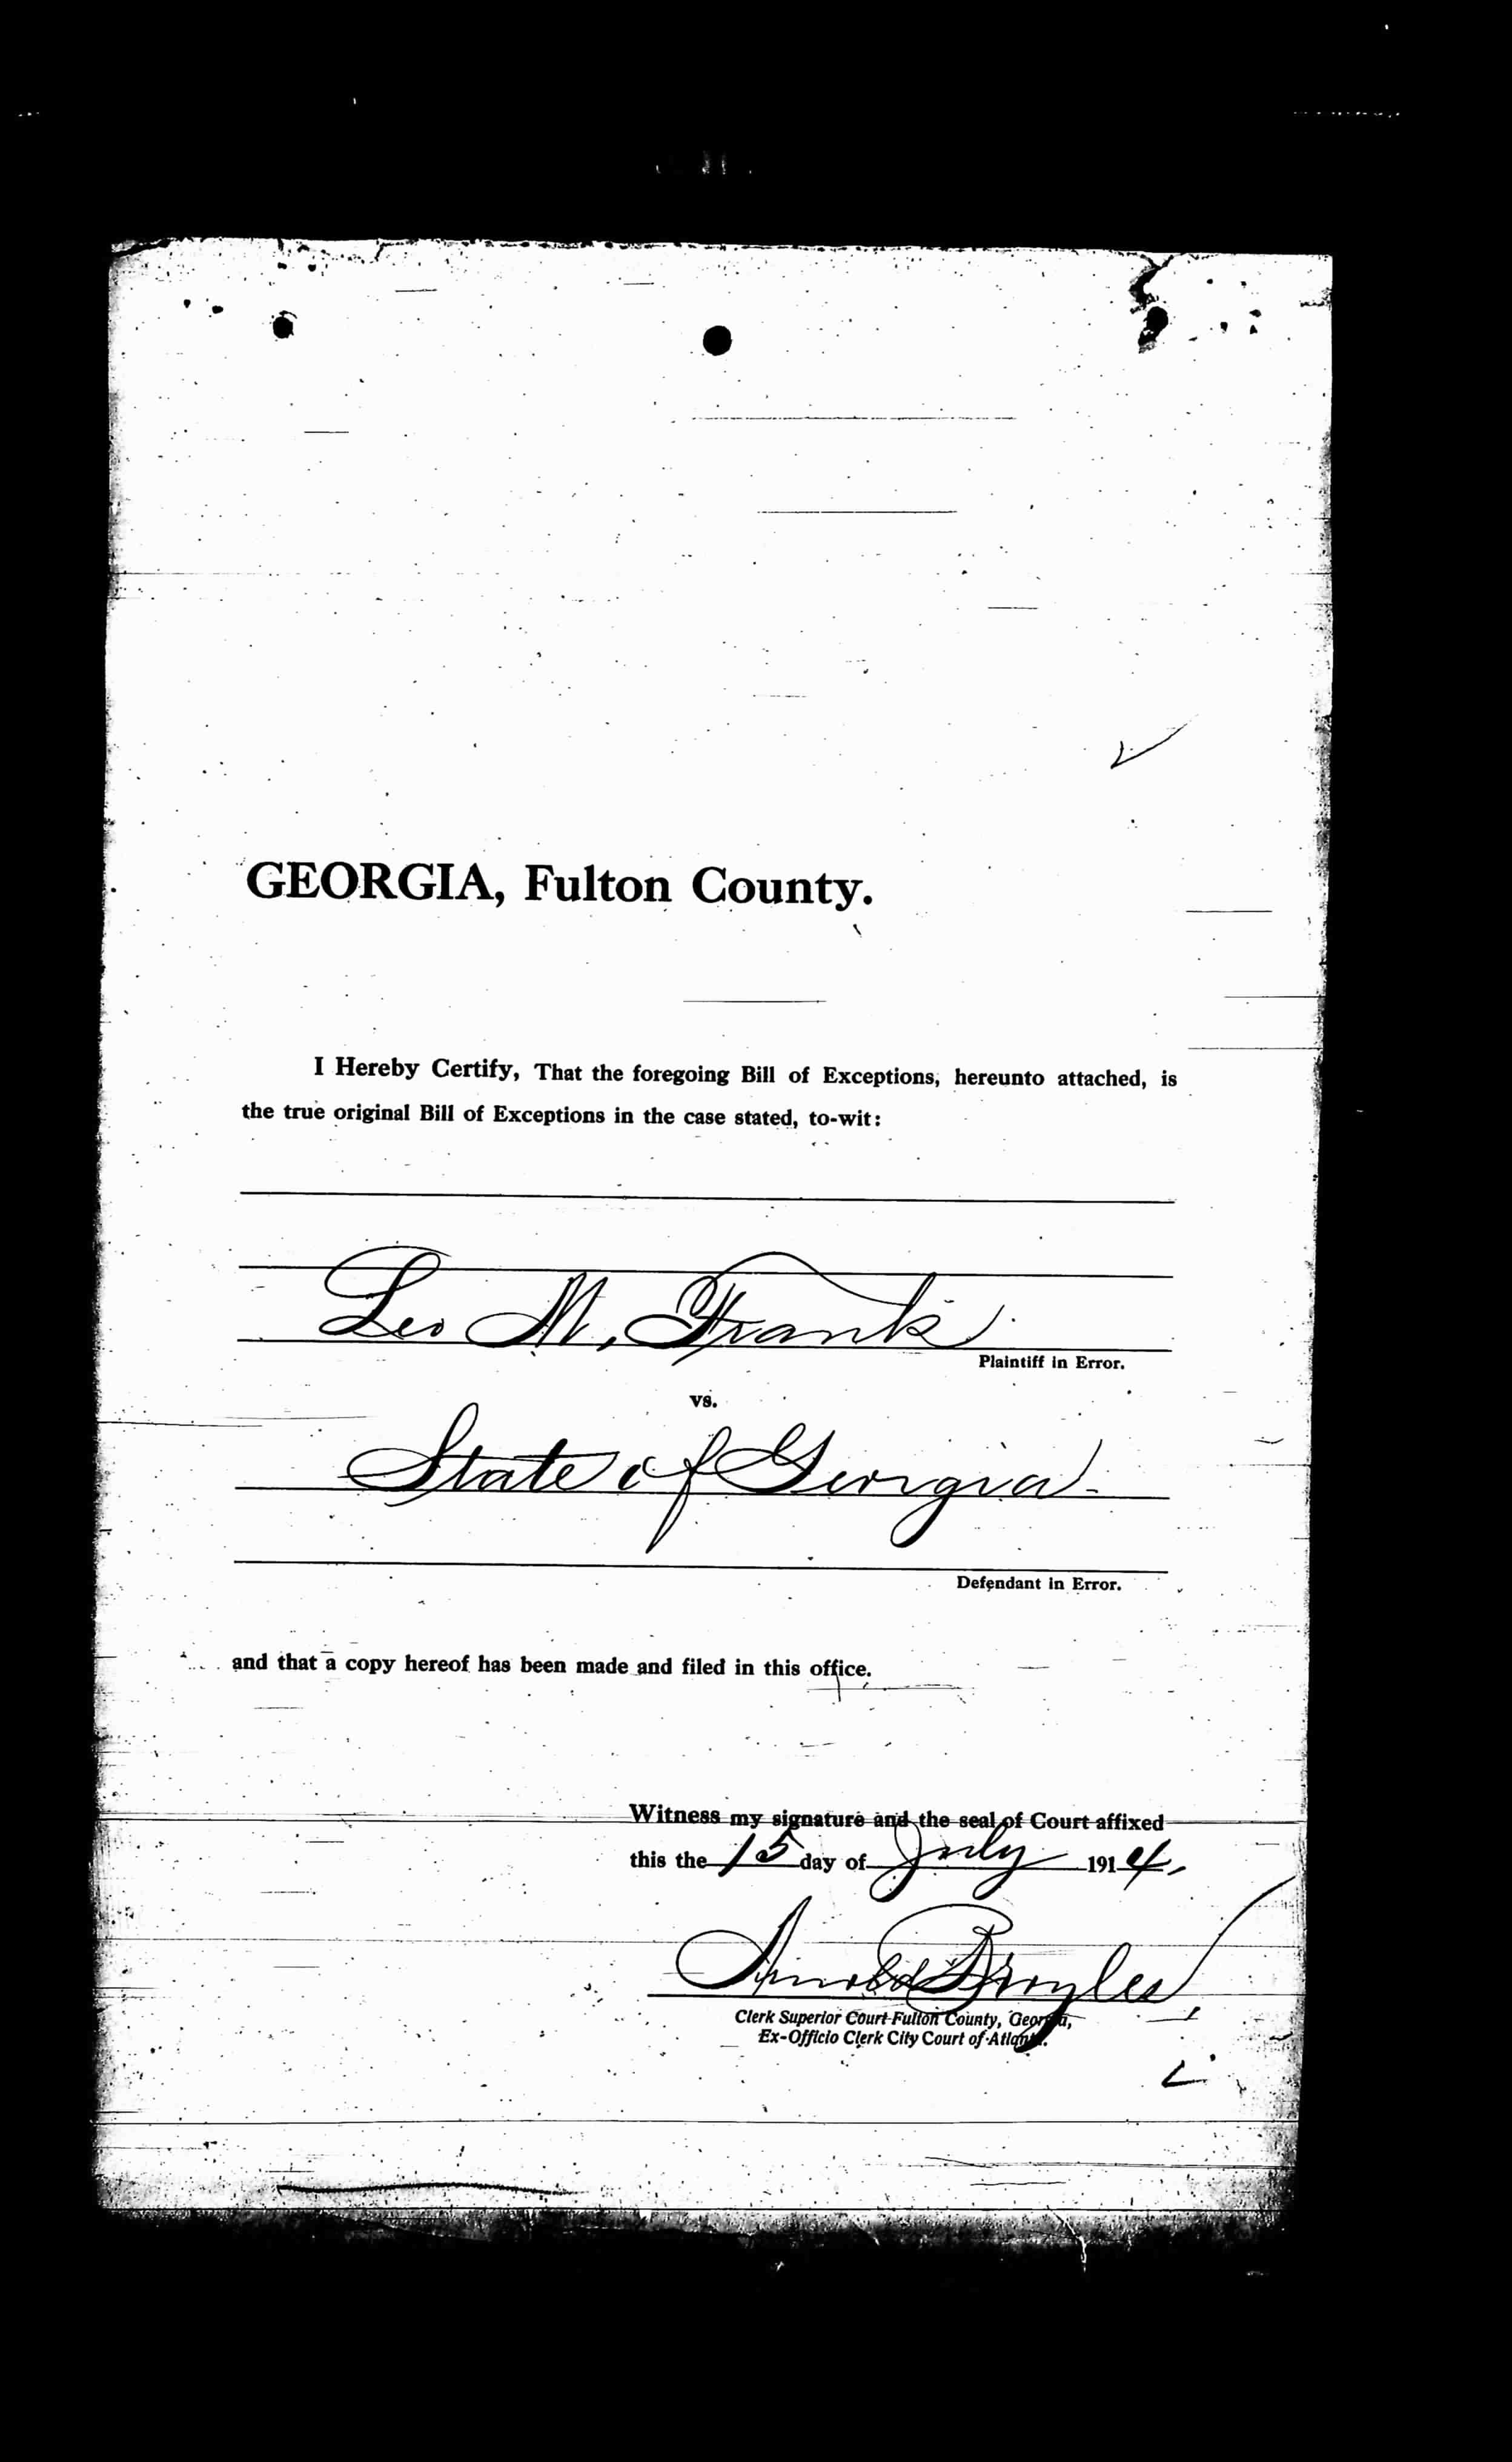 GEORGIA, Fulton County.
I Hereby Certify, That the foregoing Bill of Exceptions, hereunto attached, is
the true original Bill of Exceptions in the case stated, to-wit:
Leo M. Frank
Plaintiff in Error.
vs.
State of Georgia.
Defendant in Error.
and that a copy hereof has been made and filed in this office.
Witness my signature and the seal of Court affixed
this the 15 day of July 1914.
Arnold Broyles,
Clerk Superior Court Fulton County, Georgia,
Ex-Officio Clerk City Court of Atlanta.